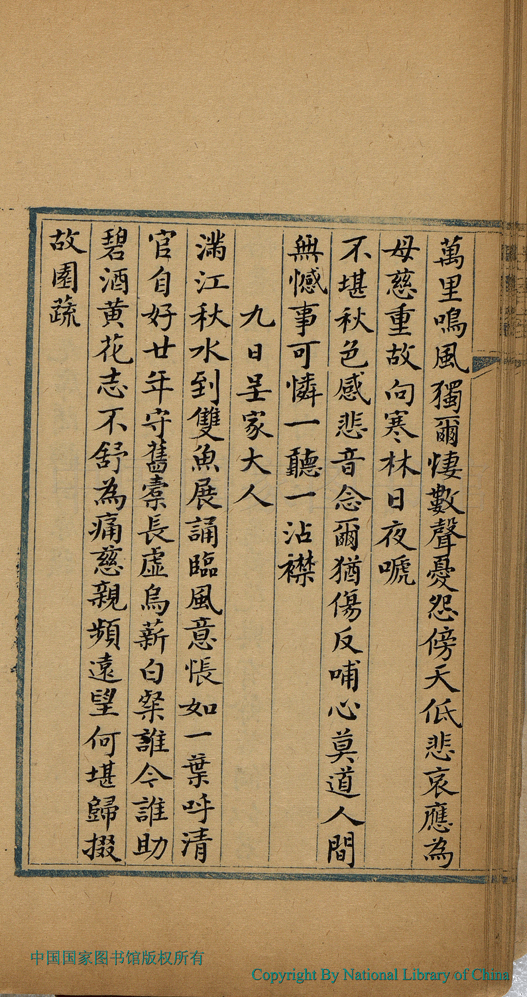 萬里鳴風獨爾悽數聲憂怨傍天低悲哀應為
母慈重故向寒林日夜嗁
不堪秋色感悲音念爾猶傷反哺心莫道人間
無憾事可憐一聽一沾襟
九日呈家大人
滿江秋水到雙魚展誦臨風意悵如一葉呼清
官自好廿年守舊橐長虛烏薪白粲誰令誰助
碧酒黃花志不舒為痛慈親頻遠望何堪歸掇
故園蔬
中国国家图书馆版权所有
Copyright By National Library of China